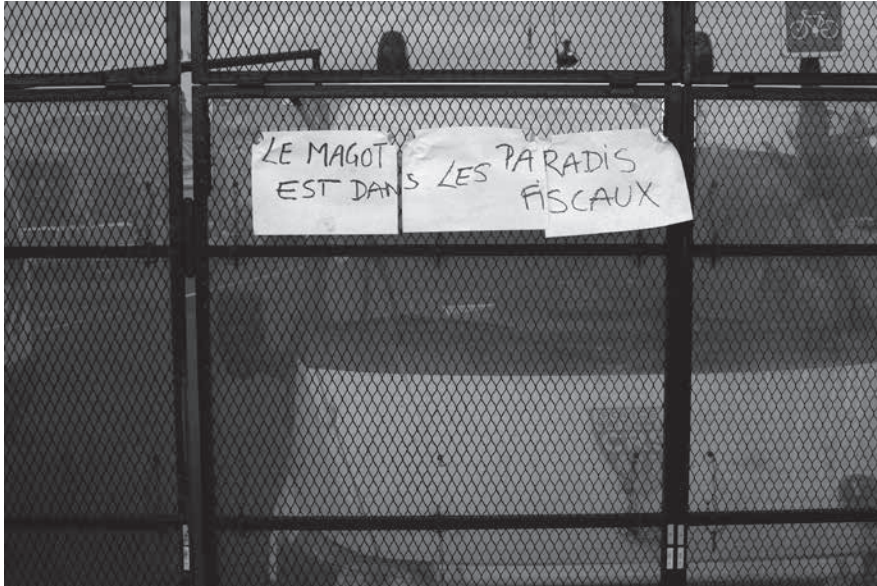 LE MAGOT
EST DANS LES PARADIS
FISCAUX